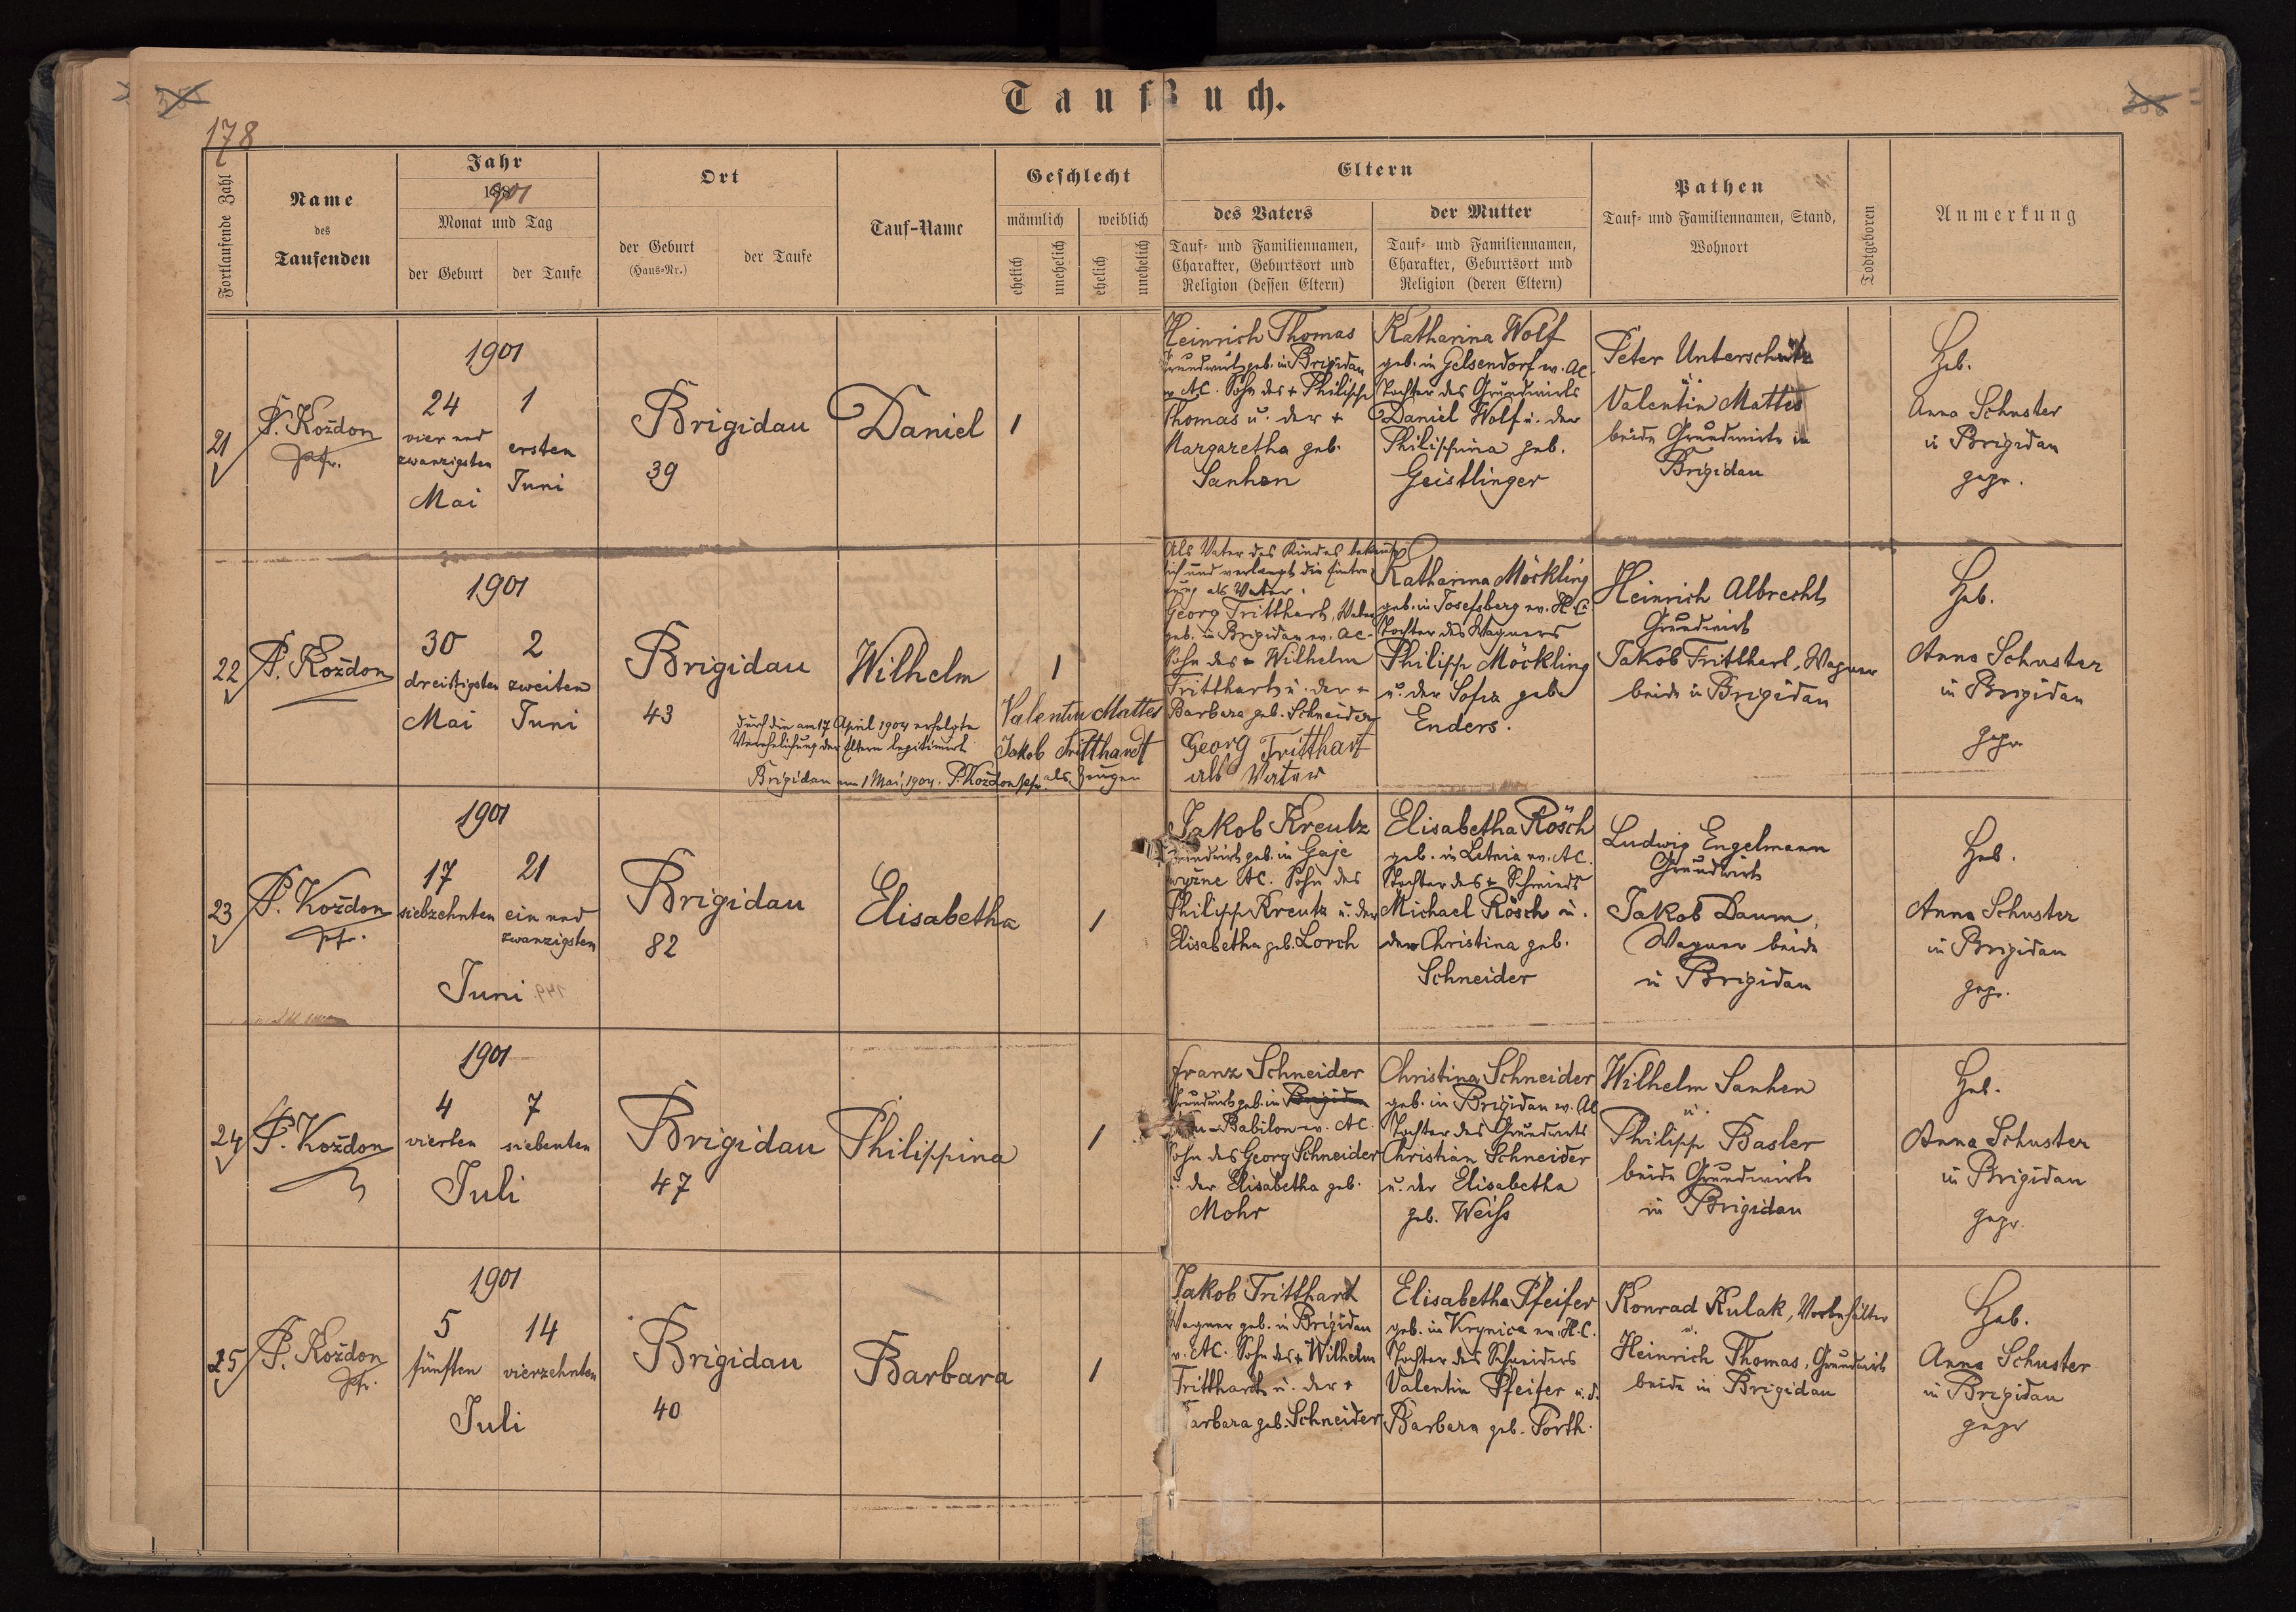 Taufbuch.
178
Fortlaufende Zahl
Name
des
Taufenden
Jahr
1901
Monat und Tag
der Geburt
der Taufe
Ort
der Geburt
(Haus=Nr.)
der Taufe
Tauf=Name
Geschlecht
männlich
weiblich
ehelich
unehelich
ehelich
unehelich
Eltern
des Vaters
Tauf= und Familiennamen,
Charakter, Geburtsort und
Religion (dessen Eltern)
der Mutter
Tauf= und Familiennamen,
Charakter, Geburtsort und
Religion (deren Eltern)
Pathen
Tauf= und Familiennamen, Stand,
Wohnort
Todtgeboren
Anmerkung
21
P. Koždon
Pfr.
1901
24
vier und
zwanzigsten
Mai
1
ersten
Juni
Brigidau
39
Daniel
1
Heinrich Thomas
Grundwirt geb. in Brigidau
ev. AC. Sohn des + Philipp
Thomas u. der +
Margaretha geb.
Sanhen
Katharina Wolf
geb. in Gelsendorf ev. AC.
Tochter des Grundwirts
Daniel Wolf u. der
Philippina geb.
Geistlinger
Peter Unterschütz
u.
Valentin Mattes
beide Grundwirte in
Brigidau
Heb.
Anna Schuster
in Brigidau
gepr.
22
P. Koždon
1901
30
dreißigsten
Mai
2
zweiten
Juni
Brigidau
43
Wilhelm
1
Durch die am 17 April 1904 erfolgte
Verehelichung der Eltern legitimirt
Brigidau am 1 Mai 1904. P. Koždon Pfr.
Valentin Mattes
Jakob Fritthardt
als Zeugen
Als Vater des Kindes bekennt
sich und verlangt die Eintra=
gung als Vater:
Georg Tritthart,
geb. in Brigidau ev. AC.
Sohn des + Wilhelm
Tritthart u. der +
Barbara geb. Schneider
Georg Tritthart
als Vater
Katharina Möckling
geb. in Josefsberg ev. H.C.
Tochter des Wagners
Philipp Möckling
u. der Sofia geb.
Enders.
Heinrich Albrecht
Grundwirt
Jakob Tritthart, Wagner
beide in Brigidau
Heb.
Anna Schuster
in Brigidau
gepr.
23
P. Koždon
Pfr.
1901
17
siebzehnten
21
ein und
zwanzigsten
Juni
Brigidau
82
Elisabetha
1
Jakob Kreutz
Grundwirt geb. in Gaje
wyżne AC. Sohn des
Philipp Kreutz u. der
Elisabetha geb. Lorch
Elisabetha Rösch
geb. in Letnia ev. AC.
Tochter des + Schmieds
Michael Rösch u.
der Christina geb.
Schneider
Ludwig Engelmann
Grundwirt
Jakob Daum,
Wagner beide
in Brigidau
Heb.
Anna Schuster
in Brigidau
gepr.
24
P. Koždon
1901
4
vierten
7
siebenten
Juli
Brigidau
47
Philippina
1
Franz Schneider
Grundwirt geb. in Brigidau
Babilon ev. AC.
Sohn des Georg Schneider
u. der Elisabetha geb.
Mohr
Christina Schneider
geb. in Brigidau ev. AC
Tochter des Grundwirts
Christian Schneider
u. der Elisabetha
geb. Weiss
Wilhelm Sanhen
u.
Philipp Basler
beide Grundwirte
in Brigidau
Heb.
Anna Schuster
in Brigidau
gepr.
25
P. Koždon
Pfr.
1901
5
fünften
14
vierzehnten
Juli
Brigidau
40
Barbara
1
Jakob Tritthart
Wagner geb. in Brigidau
ev. AC. Sohn des + Wilhelm
Tritthart u. der +
Barbara geb. Schneider
Elisabetha Pfeifer
geb. in Krynica ev. H.C.
Tochter des Schneiders
Valentin Pfeifer u. d.
Barbara geb. Porth.
Konrad Kulak, Vorbehälter
u.
Heinrich Thomas, Grundwirt
beide in Brigidau
Heb.
Anna Schuster
in Brigidau
gepr